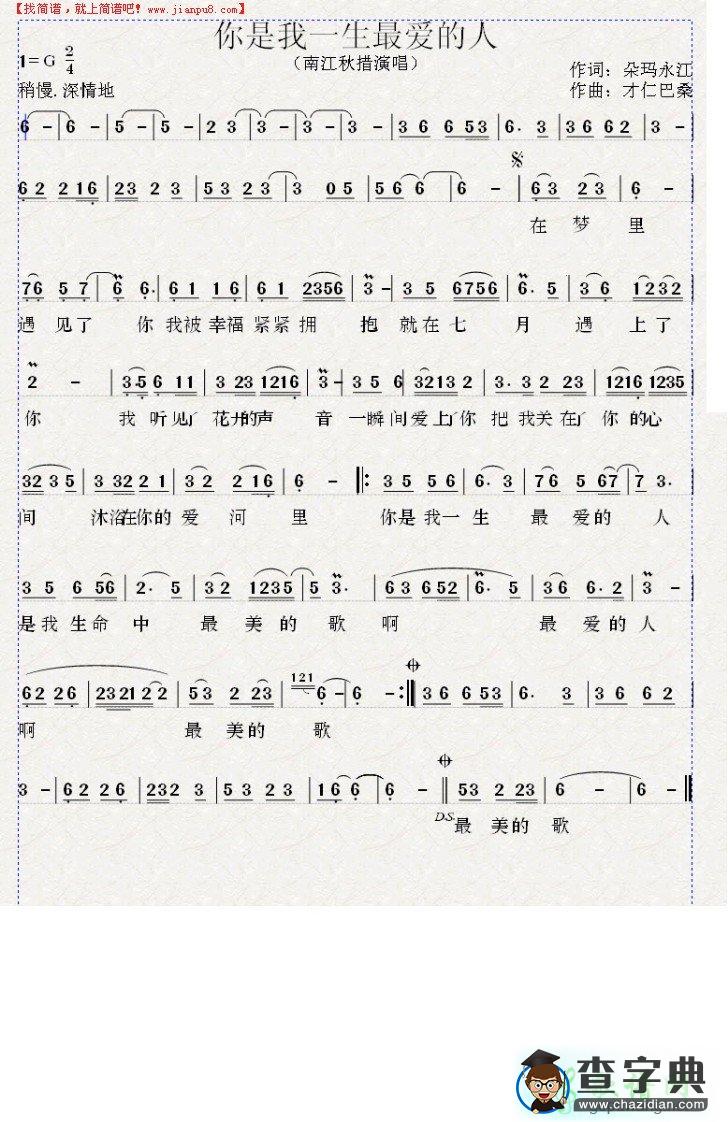 【找简谱，就上简谱吧！www.jianpu8.com】
你是我一生最爱的人
（南江秋措演唱）
1=G 2/4
作词：朵玛永江
稍慢.深情地
作曲：才仁巴桑
6 - | 6 - | 5 - | 5 - | 2 3 | 3 - | 3 - | 3 - | 3 6 6 53 | 6. 3 | 3 6 6 2 | 3 -
6 2 2 16 | 23 2 3 | 5 3 2 3 | 3 0 5 | 5 6 6 | 6 - | 6 3 2 3 | 6 -
在 梦 里
76 5 7 | 6 6. | 6 1 1 6 | 6 1 2356 | 3 - | 3 5 6756 | 6. 5 | 3 6 1232
遇 见了 你 我被 幸福 紧紧 拥 抱 就在 七 月 遇 上了
2 - | 3.5 6 11 | 3 23 1216 | 3 - | 3 5 6 | 3213 2 | 3. 3 2 23 | 1216 1235
你 我 听见了 花开的声 音 一瞬间 爱上了你 把 我关在了 你的心
3235 | 3 32 2 1 | 3 2 2 16 | 6 - ‖: 3 5 5 6 | 6. 3 | 76 5 67 | 7 3.
间 沐浴在你的 爱 河 里 你是 我一 生 最 爱的 人
3 5 6 56 | 2. 5 | 3 2 1235 | 5 3. | 63 652 | 6. 5 | 36 6.2 | 3 -
是我 生命 中 最 美 的 歌 啊 最 爱的 人
62 26 | 232122 | 53 2 23 | 121 6 - | 6 - :‖ 3 6 6 53 | 6. 3 | 3 6 6 2
啊 最 美的 歌
3 - | 6 2 2 6 | 232 3 | 5 3 2 3 | 16 6 | 6 - ‖ 53 2 23 | 6 - | 6 - ‖
D.S. 最 美的 歌
查字典
www.chazidian.com